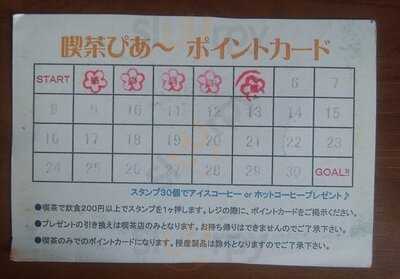 喫茶ぴあ～ ポイントカード
START 6 7
8 9 10 11 12 13 14 15
16 17 18 19 20 21 22 23
24 25 26 27 28 29 30 GOAL!!
スタンプ30個でアイスコーヒー or ホットコーヒープレゼント♪
●喫茶で飲食200円以上でスタンプを1ヶ押します。レジの際に、ポイントカードをご掲示ください。
●プレゼントの引き換えは喫茶店のみとなります。お持ち帰りはできませんのでご了承下さい。
●喫茶のみでのポイントカードになります。授産製品は除外となりますのでご了承下さい。